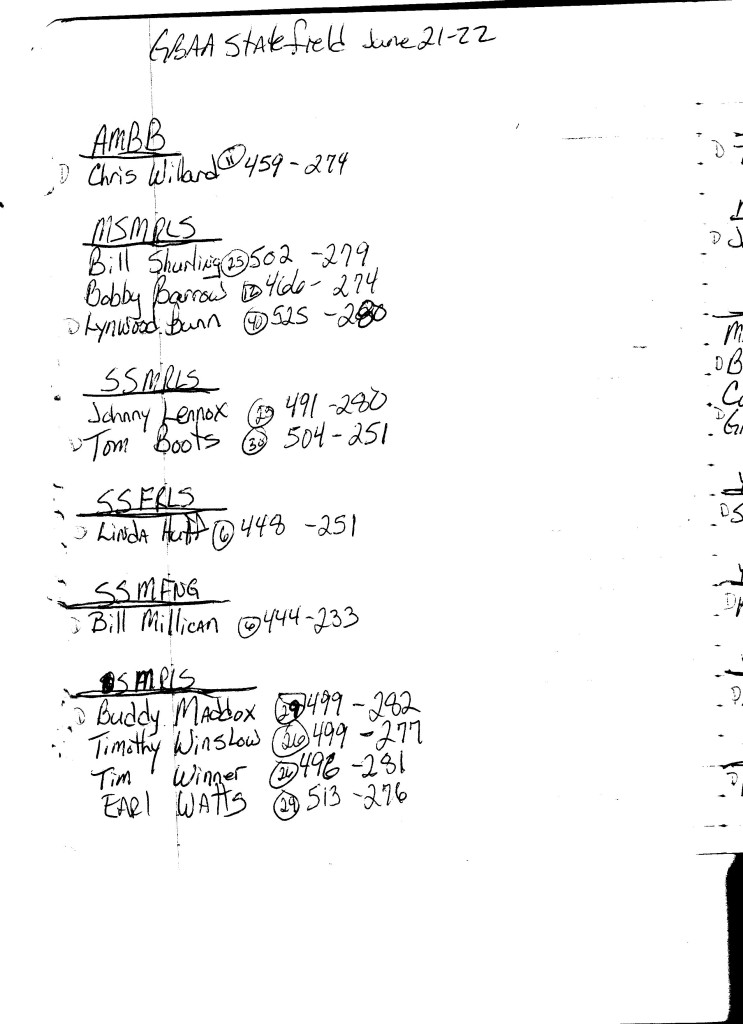 GBAA State field June 21-22
AMBB
D Chris Willard 11 459 - 274
MSMRLS
Bill Shurling 25 502 - 279
Bobby Barrow 12 466 - 274
D Lynwood Bunn 40 525 - 280
SSMRLS
Johnny Lennox 491 - 280
D Tom Boots 30 504 - 251
SSFRLS
D Linda Huff 6 448 - 251
SSMFNG
D Bill Millican 6 444 - 233
SMRLS
D Buddy Maddox 29 499 - 282
Timothy Winslow 26 499 - 277
Tim Winner 26 496 - 281
EARl WAtts 29 513 - 276
D
D J
M
D B
Co
D G
D S
D
D
D